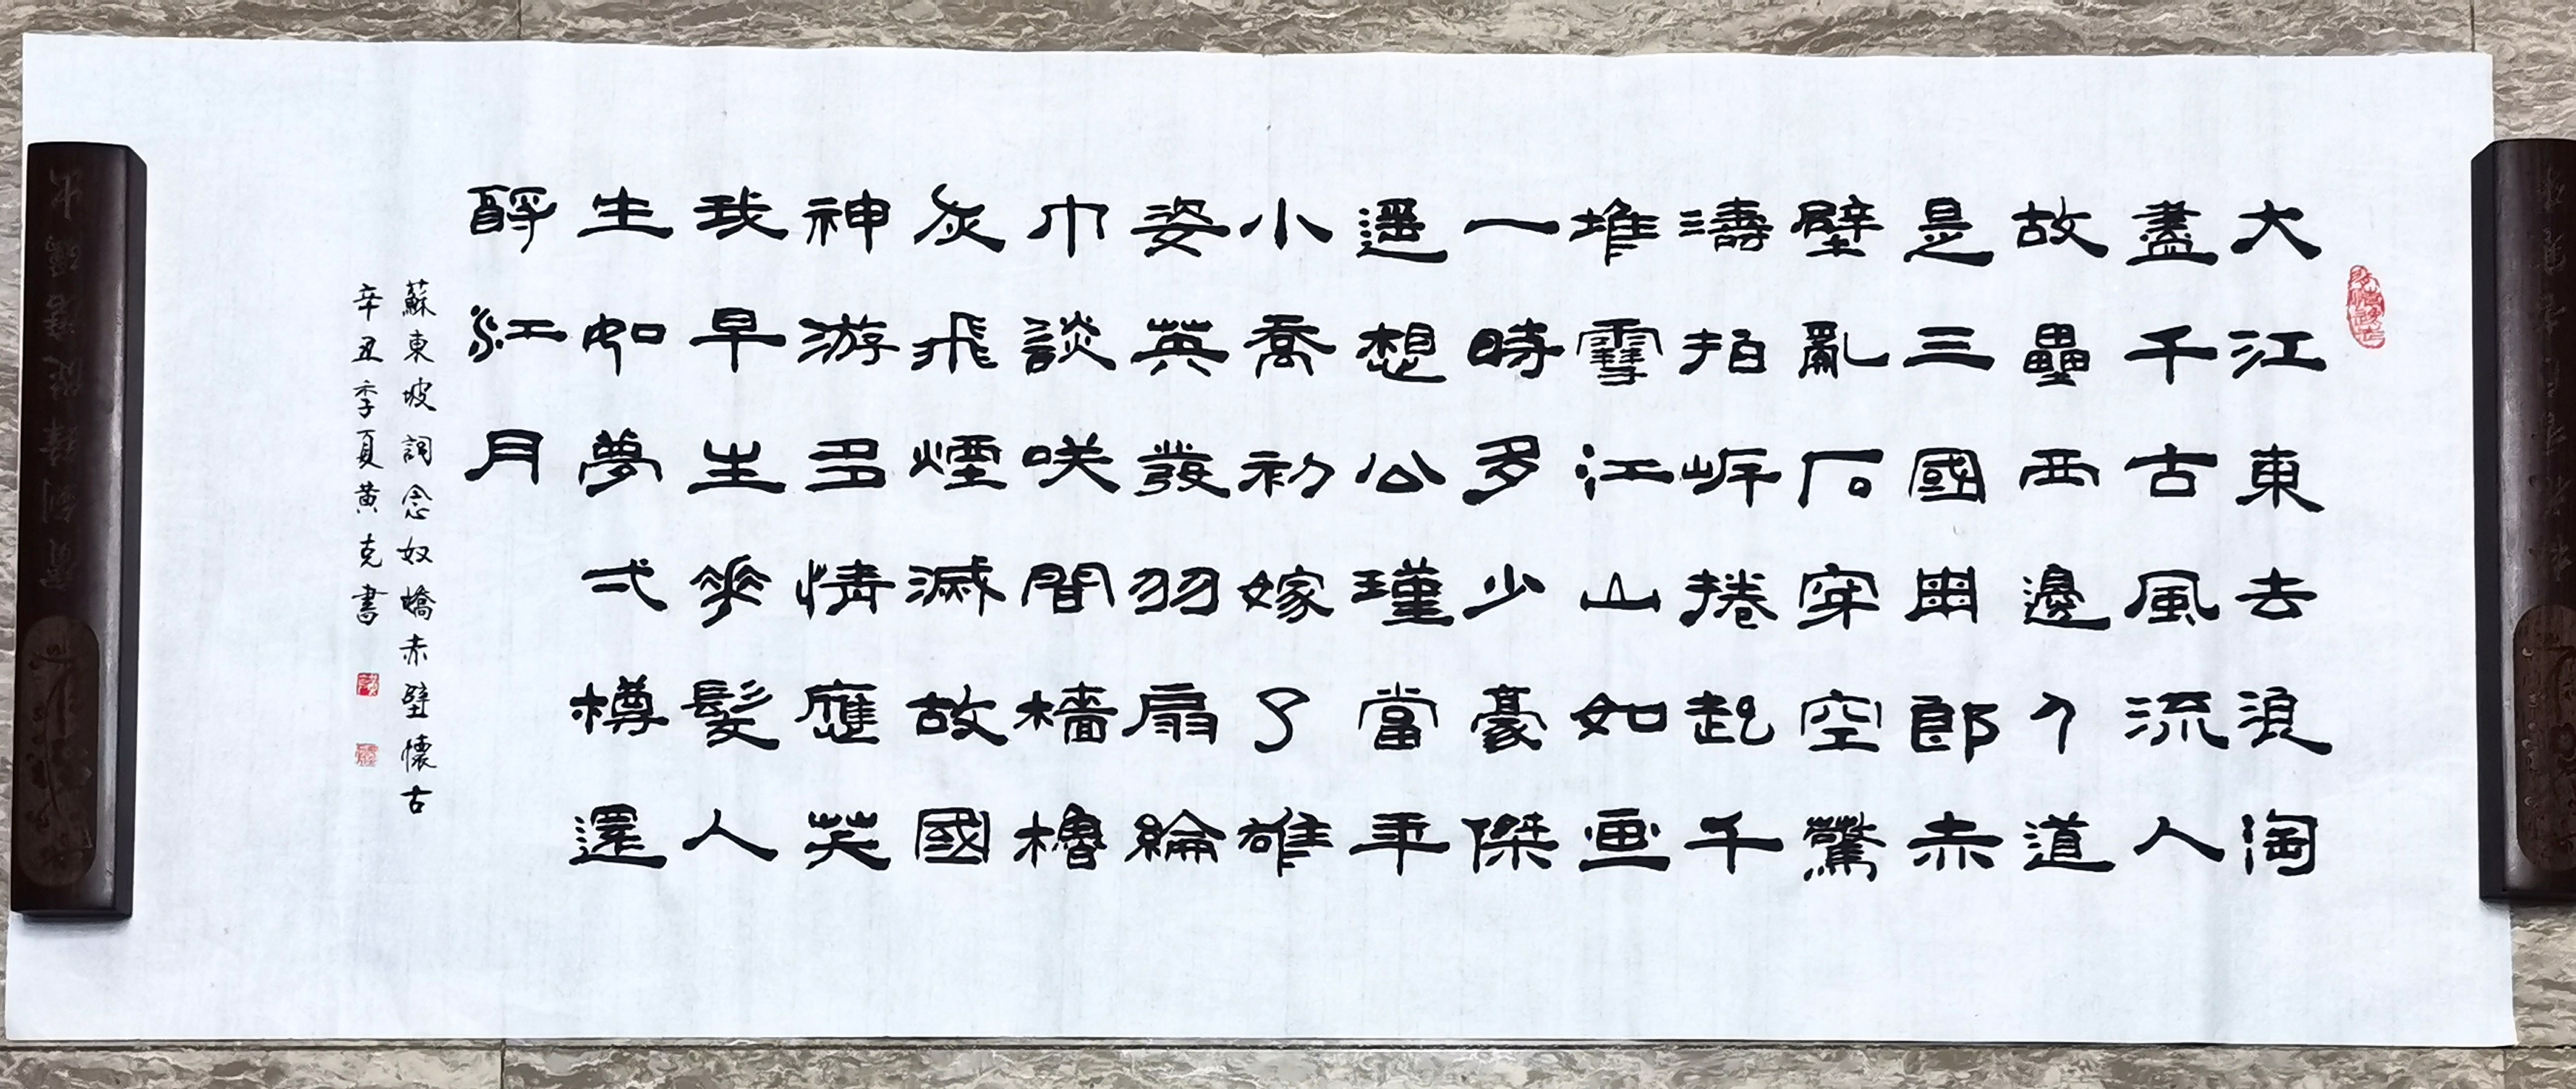 大江東去浪淘
盡千古風流人
故壘西邊人道
是三國周郎赤
壁亂石穿空驚
濤拍岸捲起千
堆雪江山如画
一時多少豪傑
遥想公瑾當年
小喬初嫁了雄
姿英發羽扇綸
巾談咲間檣櫓
灰飛煙滅故國
神游多情應笑
我早生華髮人
生如夢一樽還
酹江月
蘇東坡詞念奴嬌赤壁懷古
辛丑季夏黄克書